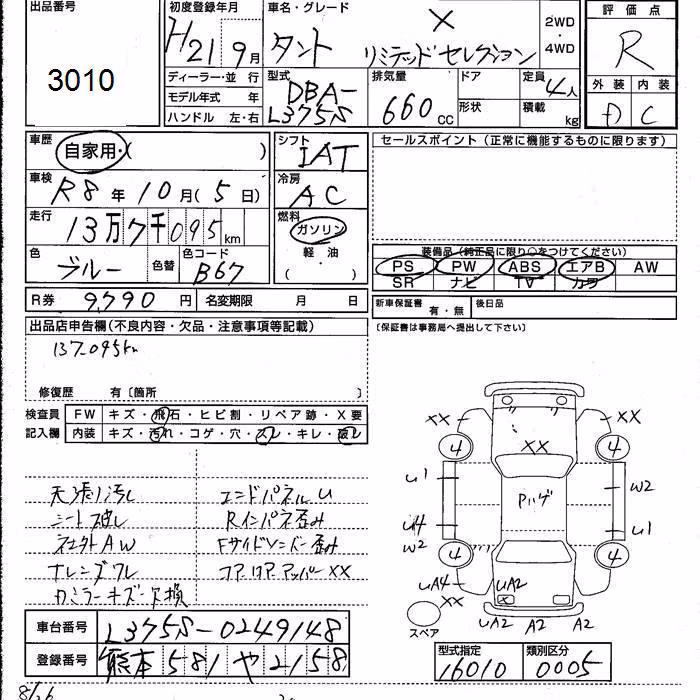 出品番号
3010
初度登録年月
H21 9月
車名・グレード
タント X リミテッド セレクション
2WD
・
4WD
評価点
R
外装 内装
D C
ディーラー・並 行
モデル年式 年
ハンドル 左・右
型式
DBA-
L375S
排気量
660 CC
ドア
形状
定員
4人
積載
kg
車歴
自家用・( )
車検
R8 年 10 月( 5 日)
走行
13万7千095 km
色
ブルー
色替
色コード
B67
シフト
IAT
冷房
AC
燃料
ガソリン
軽・油
( )
セールスポイント (正常に機能するものに限ります)
装備品 (純正品に限り○をつけてください)
PS PW ABS エアB AW
SR ナビ TV カワ
R券 9,790 円
名変期限 月 日
新車保証書
有・無
後日品
〔保証書は事務局へ提出して下さい〕
出品店申告欄(不良内容・欠品・注意事項等記載)
137,095km
修復歴 有〔箇所 〕
検査員
記入欄
FW キズ・飛石・ヒビ割・リペア跡・X要
内装 キズ・汚れ・コゲ・穴・スレ・キレ・破レ
天張り汚レ
シート破レ
社外AW
ナンレンズワレ
エンドパネルU
Rインパネ歪み
Fサイドメンバー歪み
コアロアアッパーXX
XX XX
4 4
XX
U1
W2
Pハゲ
U4
U1
W2
4 4
UA4
UA2
XX
X
UA2 A2 A2
スペア
車台番号 L375S-0249148
登録番号 熊本 581 や 2158
型式指定
16010
類別区分
0005
8/26